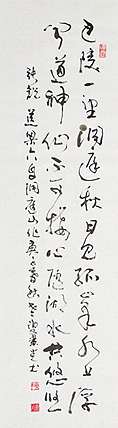 巴陵一望洞庭秋日见孤峰水上浮
闻道神仙不可接心随湖水共悠悠
张说送梁六自洞庭山作